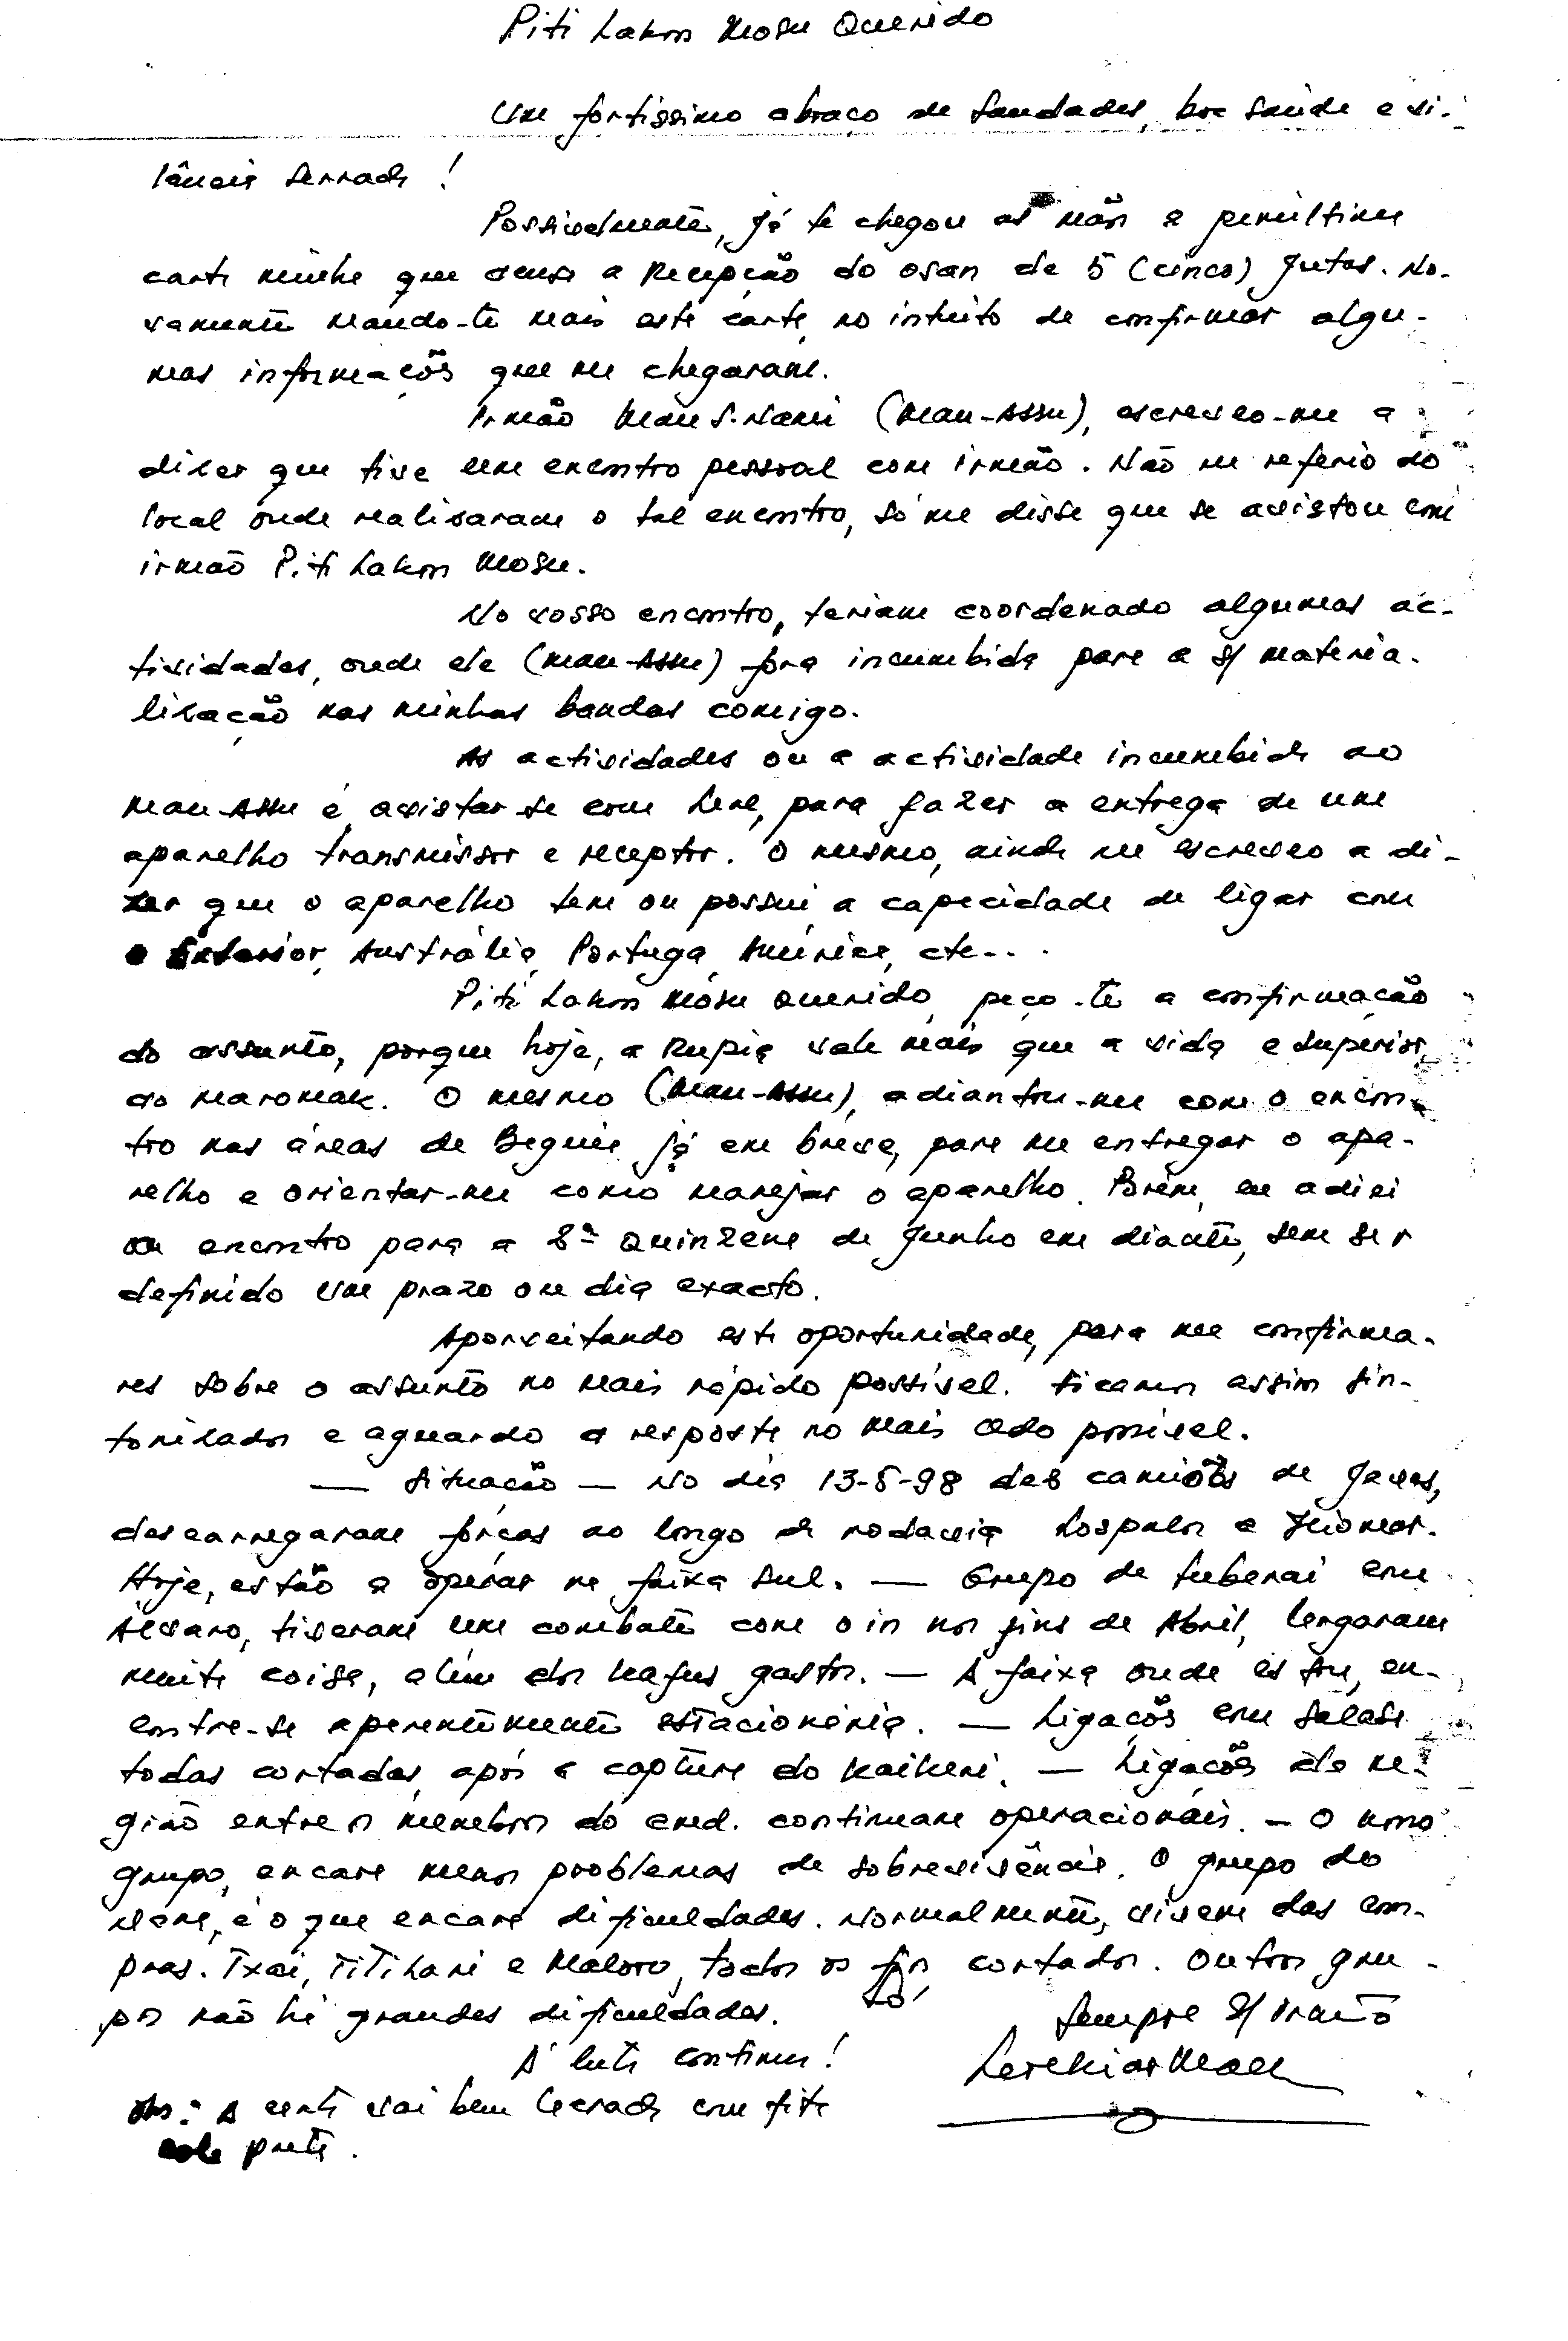 Piti Lakon Mosu Querido
Um fortissimo abraço de saudades, boa saúde e vi-
lância serrada !
Possivelmente, já te chegou as mãos a penúltima
carta minha que acusa a recepção do osan de 5 (cinco) Jutas. No-
vamente mando-te mais esta carta, no intuito de confirmar algu-
mas informações que me chegaram.
Irmão Mau S. Nami (Mau-Assu), escreveo-me a
dizer que tive um encontro pessoal com irmão. Não me referio do
local onde realisaram o tal encontro, só me disse que se avistou com
irmão Piti Lakon Mosu.
No vosso encontro, teriam coordenado algumas ac-
tividades, onde ele (Mau-Assu) fora incumbida para a s/ materia-
lização nas minhas bandas comigo.
As actividades ou a actividade incumbida ao
Mau-Assu é avistar-se com Lere, para fazer a entrega de um
aparelho transmissor e receptor. O mesmo, ainda me escreveo a di-
zer que o aparelho tem ou possui a capacidade de ligar com
o Exterior, Austrália, Portuga, América, etc...
Piti Lakon Mosu Querido, peço-te a confirmação
do assunto, porque hoje, a Rupia vale mais que a vida e superior
ao Maromak. O mesmo (Mau-Assu), adiantou-me com o encon-
tro nas áreas de Beguia já em breve, para me entregar o apa-
relho e orientar-me como manejar o aparelho. Porém, eu adiei
ou encontro para a 2ª Quinzena de Junho em diante, sem ser
definido um prazo ou dia exacto.
Aporveitando esta oportunidade, para me confirma-
res sobre o assunto no mais rápido possível. Ficamos assim sin-
tonizados e aguardo a resposta no mais cedo possivel.
— Situação — No dia 13-5-98 des camiões de Javas,
descarregaram forças ao longo da rodavia Lospalos e Iliomar.
Hoje, estão a operar na faixa Sul. — Grupo de Luberai com
Álvaro, tiveram um combate com o in nos fins de Abril, largaram
muita coisa, além dos Kafus gastos. — A faixa onde estou, en-
contra-se aparentemente estacionária. — Ligações com Sálasa
todas cortadas, após a captura do Kaikeri. — Ligações da re-
gião entre os membros do cmd. continuam operacionais. — O nosso
grupo, encara menos problemas de sobrevivência. O grupo do
é o que encara dificuldades. Normalmente, vivem das com-
pras. Txai, Titilari e Maloro, todos os fós, cortados. Outros gru-
fó
pos não há grandes dificuldades.
Sempre S/ Irmão
A luta continua!
Obs: A carta vai bem lacrada com fita
cola preta.